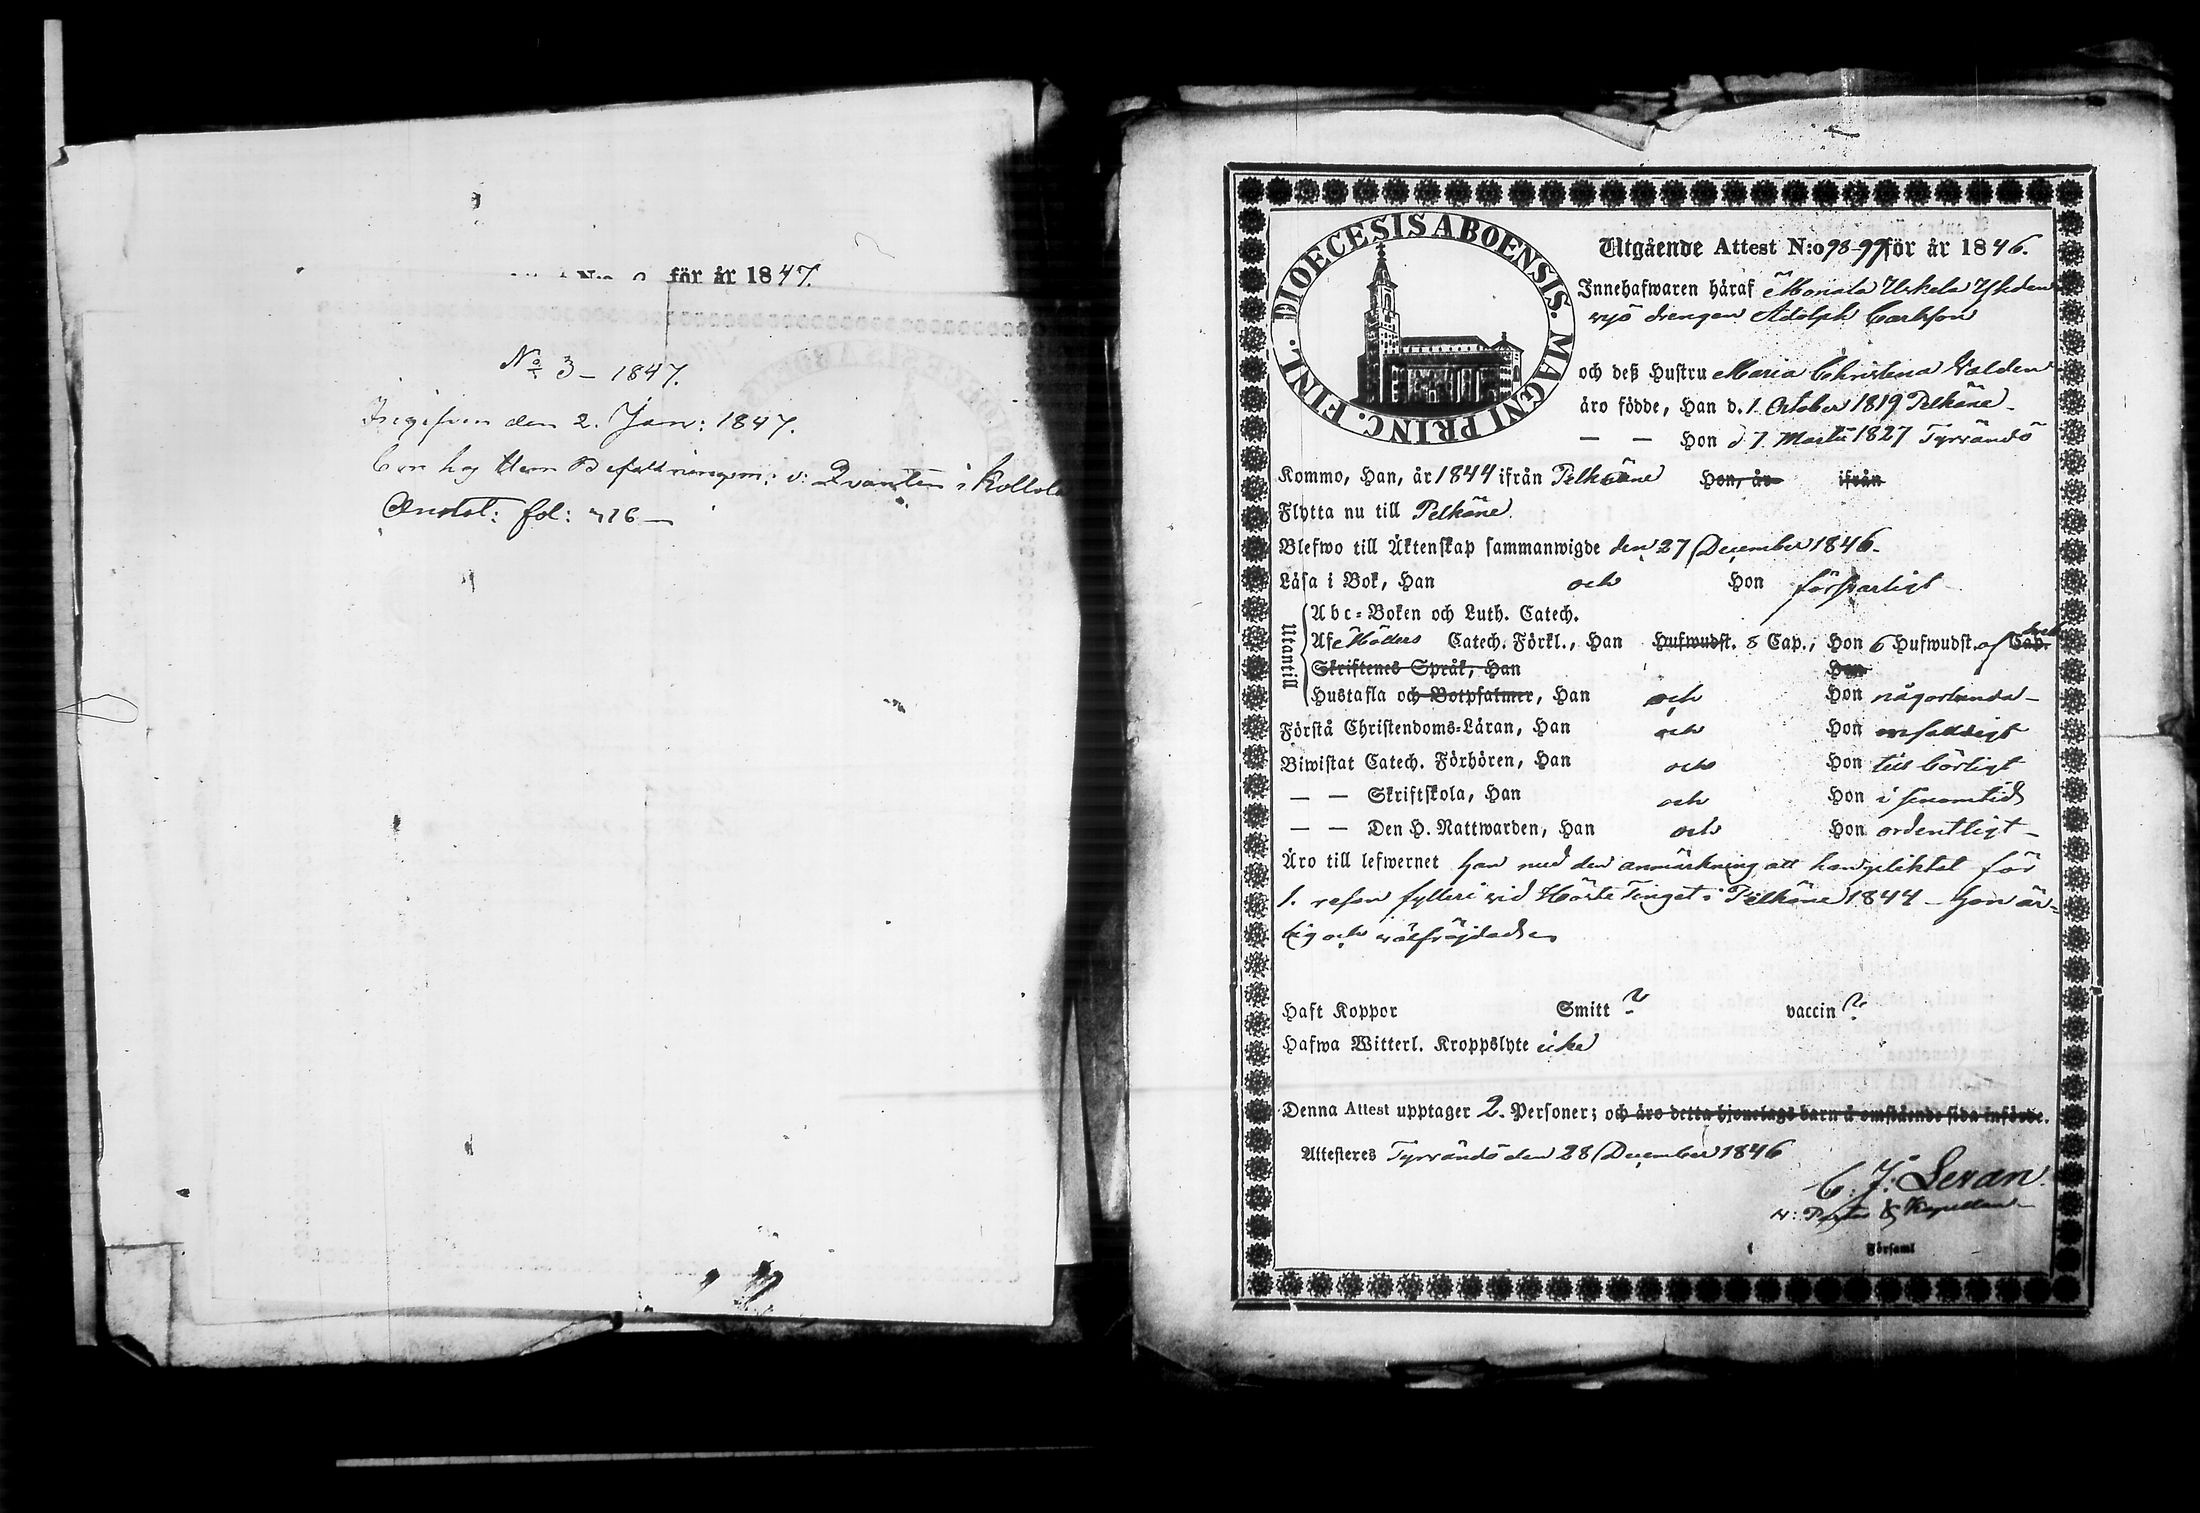 för år 1847.
No 3 – 1847.
Ingifven den 2. Jan: 1847.
Bor hos Herr Befallningsm: v: Qvanten i Kollola
Anstat: fol: 416 —
DIOECESIS ABOENSIS. MAGNI PRINC. FINL.
Utgående Attest N:o 98-99 för år 1846.
Innehafwaren häraf
drengen Adolph Carlsson
och deß Hustru Maria Christina
äro födde, Han d. 1 October 1819 Pelkäne –
— — Hon d 7 Martii 1827 Tyrvändö
Kommo, Han, år 1844 ifrån Pelkäne Hon, år ifrån
Flytta nu till Pelkäne
Blefwo till Äktenskap sammanwigde den 27 December 1846.
Läsa i Bok, Han och Hon försvarligt
Utantill
Abc-Boken och Luth. Catech.
Af Möders Catech. Förkl., Han Hufwudst. 8 Cap., Hon 6 Hufwudst. af Cap.
Skriftenes Språk, Han Hon
Hustafla och Botpsalmer, Han och Hon någorlunda –
Förstå Christendoms-Läran, Han och Hon enfaldigt
Biwistat Catech. Förhören, Han och Hon till börligt
— — Skriftskola, Han och Hon i sinom tid
— — Den H. Nattwarden, Han och Hon ordentligt –
Äro till lefwernet han med den anmärkning att han pliktat för
1. resan fylleri vid Höste Tinget i Pelkäne 1844 – hon är-
lig och välfräjdad
Haft Koppor Smitt ? vaccin ?
Hafwa Witterl. Kroppslyte icke
Denna Attest upptager 2. Personer; och äro detta hjonelags barn å omstående sida införde.
Attesteres Tyrvändö den 28 December 1846
C. J: Levan.
v: Pastor & Kapellan
Församl